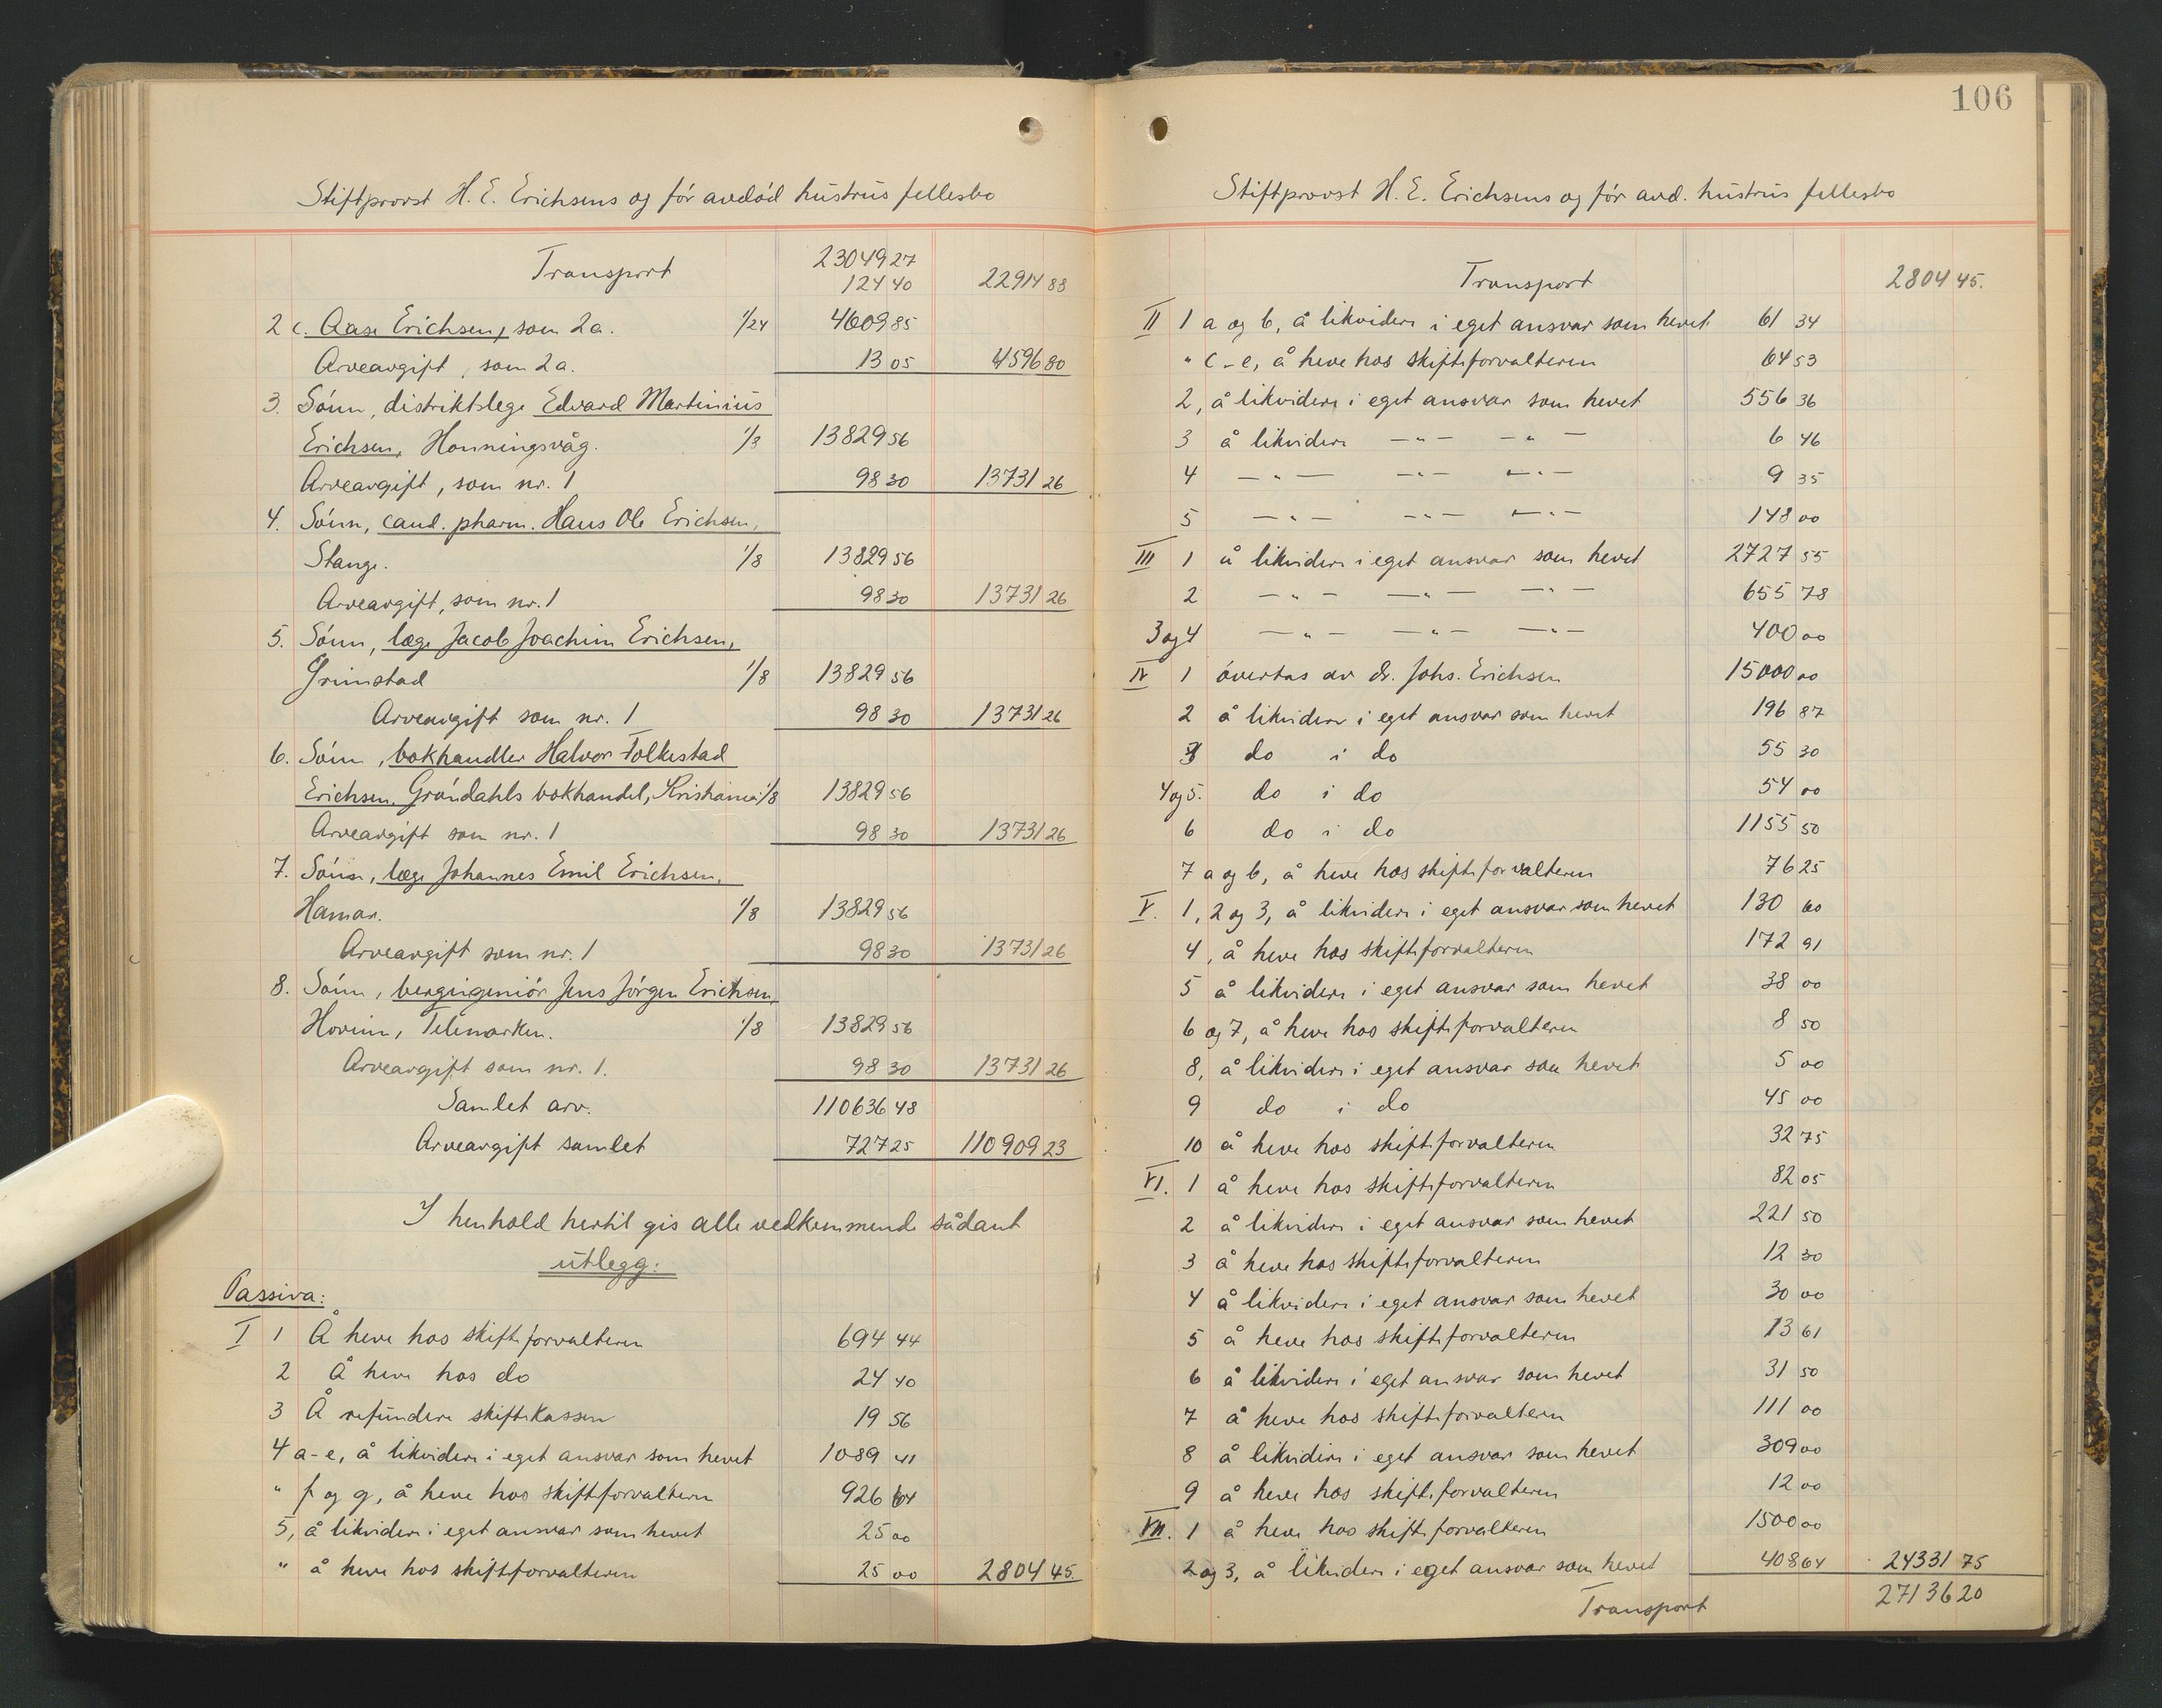 Stiftprovst H. E. Erichsens og før avdød hustrus fellesbo
Transport 23049 27
124 40 22914 88
2 c. Aase Erichsen, som 2a. 1/24 4609 85
Arveavgift, som 2a. 13 05 4596 80
3. Sønn, distriktslege Edvard Martinius
Erichsen, Honningsvåg. 1/8 13829 56
Arveavgift, som nr. 1 98 30 13731 26
4. Sønn, cand. pharm. Hans Ole Erichsen,
Stange. 1/8 13829 56
Arveavgift, som nr. 1 98 30 13731 26
5. Sønn, læge Jacob Joachim Erichsen,
Grimstad 1/8 13829 56
Arveavgift som nr. 1 98 30 13731 26
6. Sønn, bokhandler Halvor Folkestad
Erichsen, Grøndahls bokhandel, Kristiania 1/8 13829 56
Arveavgift som nr. 1 98 30 13731 26
7. Sønn, læge Johannes Emil Erichsen,
Hamar. 1/8 13829 56
Arveavgift som nr. 1 98 30 13731 26
8. Sønn, bergingeniør Jens Jørgen Erichsen,
Hovinn, Telemarken. 1/8 13829 56
Arveavgift som nr. 1. 98 30 13731 26
Samlet arv. 110636 48
Arveavgift samlet 727 25 110909 23
I henhold hertil gis alle vedkommende sådant
utlegg:
Passiva:
I 1 Å heve hos skifteforvalteren 694 44
2 Å heve hos do 24 40
3 Å refundere skiftekassen 19 56
4 a-e, å likvidere i eget ansvar som hevet 1089 41
" f og g, å heve hos skifteforvalteren 926 64
5, å likvidere i eget ansvar som hevet 25 00
" å heve hos skifteforvalteren 25 00 2804 45.
106
Stiftprovst H. E. Erichsens og før avd. hustrus fellesbo
Transport 2804 45.
II 1 a og b, å likvidere i eget ansvar som hevet 61 34
" c-e, å heve hos skifteforvalteren 64 53
2, å likvidere i eget ansvar som hevet 556 36
3 å likvidere -"- -"- 6 46
4 -"- -"- -"- 9 35
5 -"- -"- -"- 148 00
III 1 å likvidere i eget ansvar som hevet 2727 55
2 -"- -"- -"- 655 78
3 og 4 -"- -"- -"- 400 00
IV 1 overtas av dr. Johs. Erichsen 15000 00
2 å likvidere i eget ansvar som hevet 196 87
3 do i do 55 30
4 og 5. do i do 54 00
6 do i do 1155 50
7 a og b, å heve hos skifteforvalteren 76 25
V. 1, 2 og 3, å likvidere i eget ansvar som hevet 130 60
4, å heve hos skifteforvalteren 172 91
5 å likvidere i eget ansvar som hevet 38 00
6 og 7, å heve hos skifteforvalteren 8 50
8, å likvidere i eget ansvar som hevet 5 00
9 do i do 45 00
10 å heve hos skifteforvalteren 32 75
VI. 1 å heve hos skifteforvalteren 82 05
2 å likvidere i eget ansvar som hevet 221 50
3 å heve hos skifteforvalteren 12 30
4 å likvidere i eget ansvar som hevet 30 00
5 å heve hos skifteforvalteren 13 61
6 å likvidere i eget ansvar som hevet 31 50
7 å heve hos skifteforvalteren 111 00
8 å likvidere i eget ansvar som hevet 309 00
9 å heve hos skifteforvalteren 12 00
VII. 1 å heve hos skifteforvalteren 1500 00
2 og 3, å likvidere i eget ansvar som hevet 408 64 24331 75
Transport 27136 20